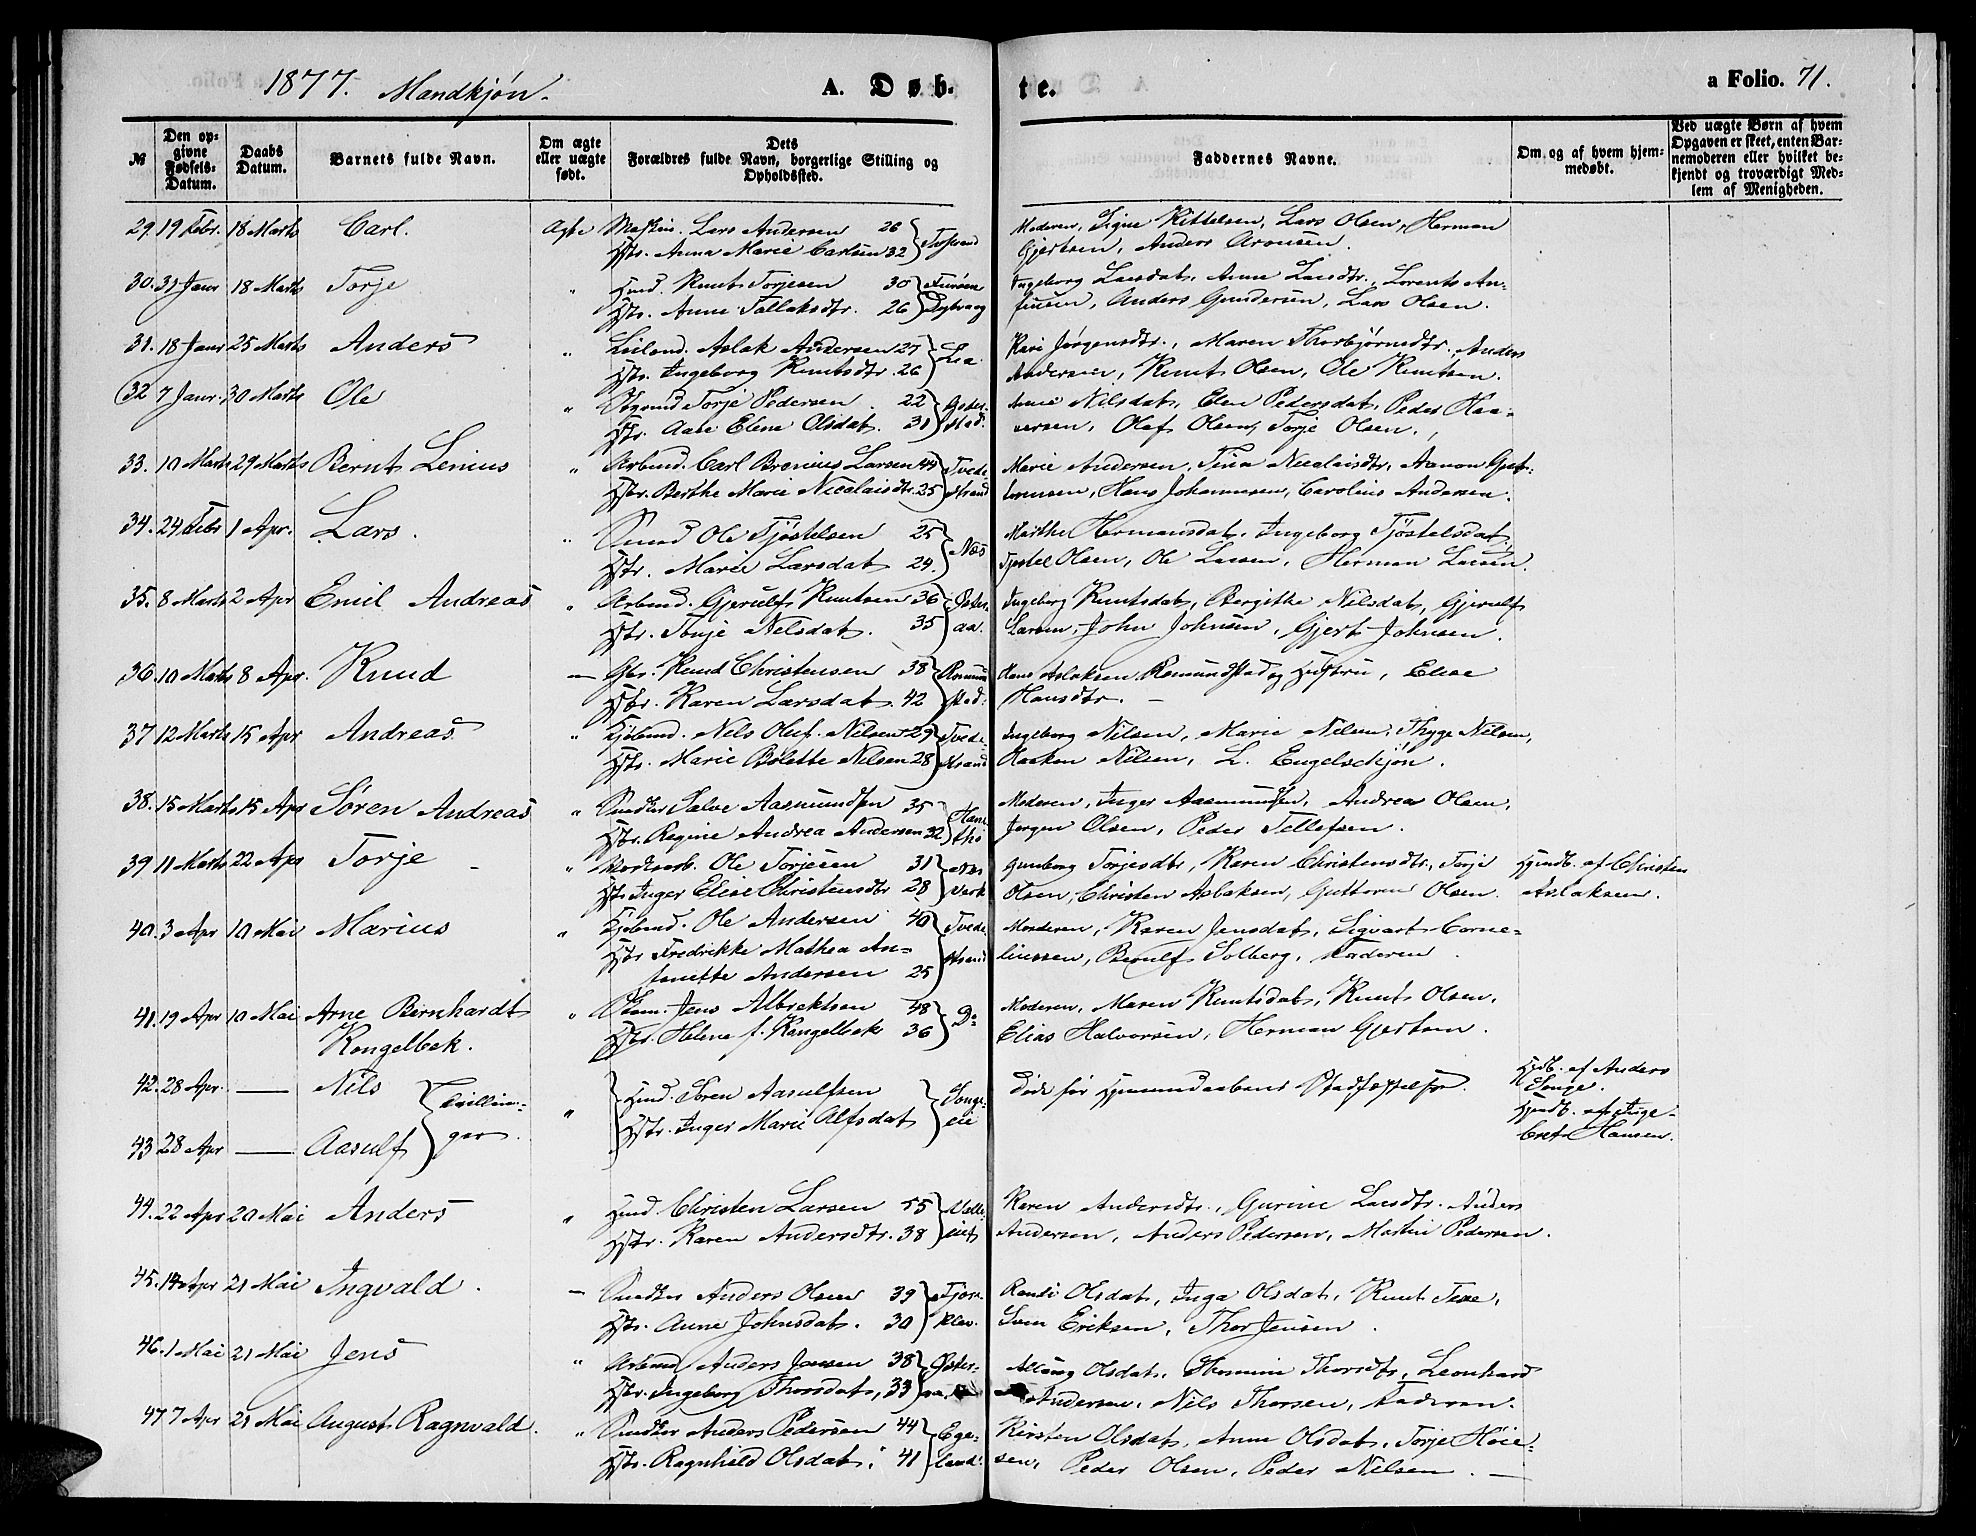 1877. Mandkjøn.
A. Døb-
te.
a Folio. 71.
№
Den op-
givne
Fødsels-
Datum.
Daabs
Datum.
Barnets fulde Navn.
Om ægte
eller uægte
født.
Dets
Forældres fulde Navn, borgerlige Stilling og
Opholdssted.
Faddernes Navne.
Om og af hvem hjem-
medøbt.
Ved uægte Børn af hvem
Opgaven er skeet, enten Bar-
nemoderen eller hvilket be-
kjendt og troværdigt Med-
lem af Menigheden.
29. 19 Febr. 18 Marts Carl. Ægte Lars Andersen 26
Hstr. Anna Marie Carlsen 32
Moderen, Signe Kittelsen, Lars Olsen, Herman
Gjertsen, Anders Aronsen.
30. 31 Janr 18 Marts Torje " Hmd. Knut Torjesen 30 Furøen
Hstr. Anne Tallaksdtr. 26 Dybvaag
Ingeborg Larsdat, Anne Larsdtr., Lorents An-
Anders Gundersen, Lars Olsen.
31. 18 Janr 25 Marts Anders " Leilænd. Aslak Andersen 27 Lia
Hstr. Ingeborg Knutsdtr. 26
Kari Jørgensdtr., Maren Thorbjørnsdtr., Anders
Andersen, Knut Olsen, Ole Knutsen.
32 7 Janr. 30 Marts Ole " Torje Pedersen. 22
Hstr. Aase Elene Olsdat. 31
Anne Nilsdat, Elen Pedersdat, Peder Haa-
versen, Olaf Olsen, Torje Olsen.
33. 10 Marts 29 Marts Bernt Lenius " Arbmd. Carl Bronius Larsen 44 Tvede-
Hstr. Berthe Marie Nicolaisdtr. 25 strand
Marie Andersen, Tina Nicolaisdtr, Aanon
Hans Johannesen, Carolius Andersen.
34. 24 Febr 1 Apr. Lars. " Smed Ole Tjøstelsen 25 Næs
Hstr. Marie Larsdat 24.
Marthe Hermansdat, Ingeborg Tjøstelsdat,
Tjøstel Olsen, Ole Larsen, Herman Larsen.
35. 8 Marts 2 Apr Emil Andreas " Arbmd. Gjerulf Knutsen 36 Øster-
Hstr. Tonje Nilsdat. 35 aa.
Ingeborg Knutsdat, Bergithe Nilsdat, Gjerulf
Larsen, John Johnsen, Gjert Johnsen.
36. 10 Marts 8 Apr. Knud — Gbr. Knud Christensen 38 Romun-
Hstr. Karen Larsdat. 42 stad.
Hans Aslaksen Romundstad og Hustru, Elise
Hansdtr. —
37 12 Marts 15 Apr Andreas " Kjøbmd. Nils Oluf Nilsen 29 Tvede-
Hstr. Marie Bolette Nilsen 28 strand
Ingeborg Nilsen, Marie Nilsen, Thyge Nilsen,
Haaken Nilsen, L. Engelschjøn.
38. 15 Marts 15 Apr Søren Andreas " Salve Aasmundsen 35
Hstr. Regine Andrea Andersen 32
Moderen, Inger Aasmundsen, Andrea Olsen,
Jørgen Olsen, Peder Tellefsen.
39 11 Marts 22 Apr Torje " Ole Torjesen 31 Næs
Hstr. Inger Elise Christensdtr 28 værk
Gunborg Torjesdtr, Karen Christensdtr, Torje
Olsen, Christen Aslaksen, Guttorm Olsen.
Hjmdb. af Christen
Aslaksen.
40. 3 Apr 10 Mai Marius " Kjøbmd. Ole Andersen 40 Tvede-
Hstr Fredrikke Mathea An- strand
tonette Andersen 25
Moderen, Karen Jensdat, Sigvart Corne-
liussen, Solberg, Faderen.
41. 19 Apr 10 Mai Arne Bernhardt " Jens Albrektsen 48 Do
Kongelbek. Hstr. Helene f. Kongelbek 36
Moderen, Maren Knutsdat, Knut Olsen,
Elias Halvorsen, Herman Gjertsen.
42. 28 Apr. — Nils Tvillin- " Hmd. Søren Aasulfsen Songe-
43 28 Apr — Aasulf ger. Hstr. Inger Marie Alfsdat eie
Døde før Hjemmedaabens Stadfæstelse.
Hjdb. af Anders
Songe.
Hjmdb. af Inge-
bret Hansen.
44. 22 Apr 20 Mai Anders " Hmd. Christen Larsen 55
Hstr. Karen Andersdtr. 38
Karen Andersdtr., Gurine Larsdtr. Anders
Andersen, Anders Pedersen, Martin Pedersen.
45. 14 Apr 21 Mai Ingvald. — Anders Olsen 39
Hstr. Anne Johnsdat. 30
Randi Olsdat, Inga Olsdat, Knut
Sven Eriksen, Thor Jensen.
46. 1 Mai 21 Mai Jens " Arbmd Anders Jensen 38 Øster-
Hstr. Ingeborg Thorsdat, 33 aa.
Olsdat, Thorsdtr, Leonhard
Andersen, Nils Thorsen, Faderen.
47. 7 Apr 21 Mai August Ragnvald. " Anders Pedersen 44 Ege-
Hstr. Ragnhild Olsdat. 41 land.
Kirsten Olsdat, Anne Olsdat, Torje Høie-
sen, Peder Olsen, Peder Nilsen. —